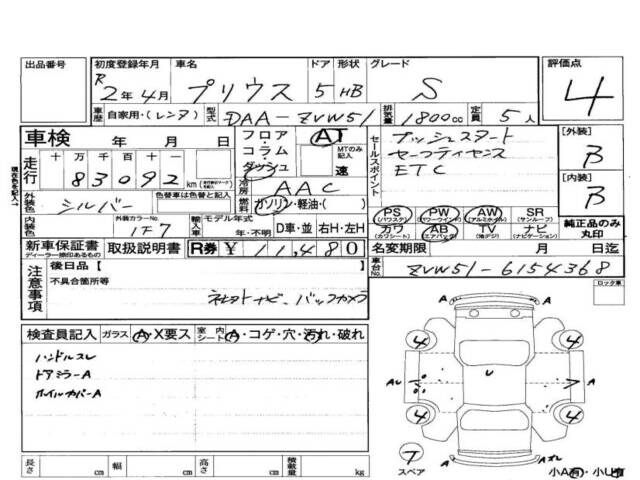 出品番号 初度登録年月 車名 ドア 形状 グレード 評価点
R2年4月 プリウス 5 HB S 4
車歴 自家用・(レンタ) 型式 DAA-ZVW51 排気量 1800cc 定員 5人
車検 年 月 日 フロア・コラム・ダッシュ AT MTのみ記入 速
走行 十万千百十一 83092 km
冷房 AAC
セールスポイント プッシュスタート
セーフティセンス
ETC
[外装] B
[内装] B
現車の色を記入→
外装色 シルバー 色替車は色替と記入 燃料 ガソリン・軽油・( )
PS (パワステ) PW (パワーウインド) AW (アルミホイル) SR (サンルーフ)
カワ (カワシート) AB (エアバック) TV (地デジ) ナビ (ナビゲーション) 純正品のみ丸印
内装色 外装カラーNo. 1F7 輸入車 モデル年式 年・不明 D車・並 右H・左H
新車保証書 ディーラー捺印あるもの 取扱説明書 R券 ¥11,480 名変期限 月 日迄
注意事項 後日品 [ ] 車台No. ZVW51-6154368
不具合箇所等 ロック車
社外ナビ、バックカメラ
検査員記入 ガラス A・X要ス 室内シート A・コゲ・穴・汚れ・破れ
ハンドルスレ
ドアミラーA
ホイルカバーA
A
4 4
AU U A
4 4
T スペア A
小A有・小U有
長さ cm 幅 cm 高さ cm 積載量 kg